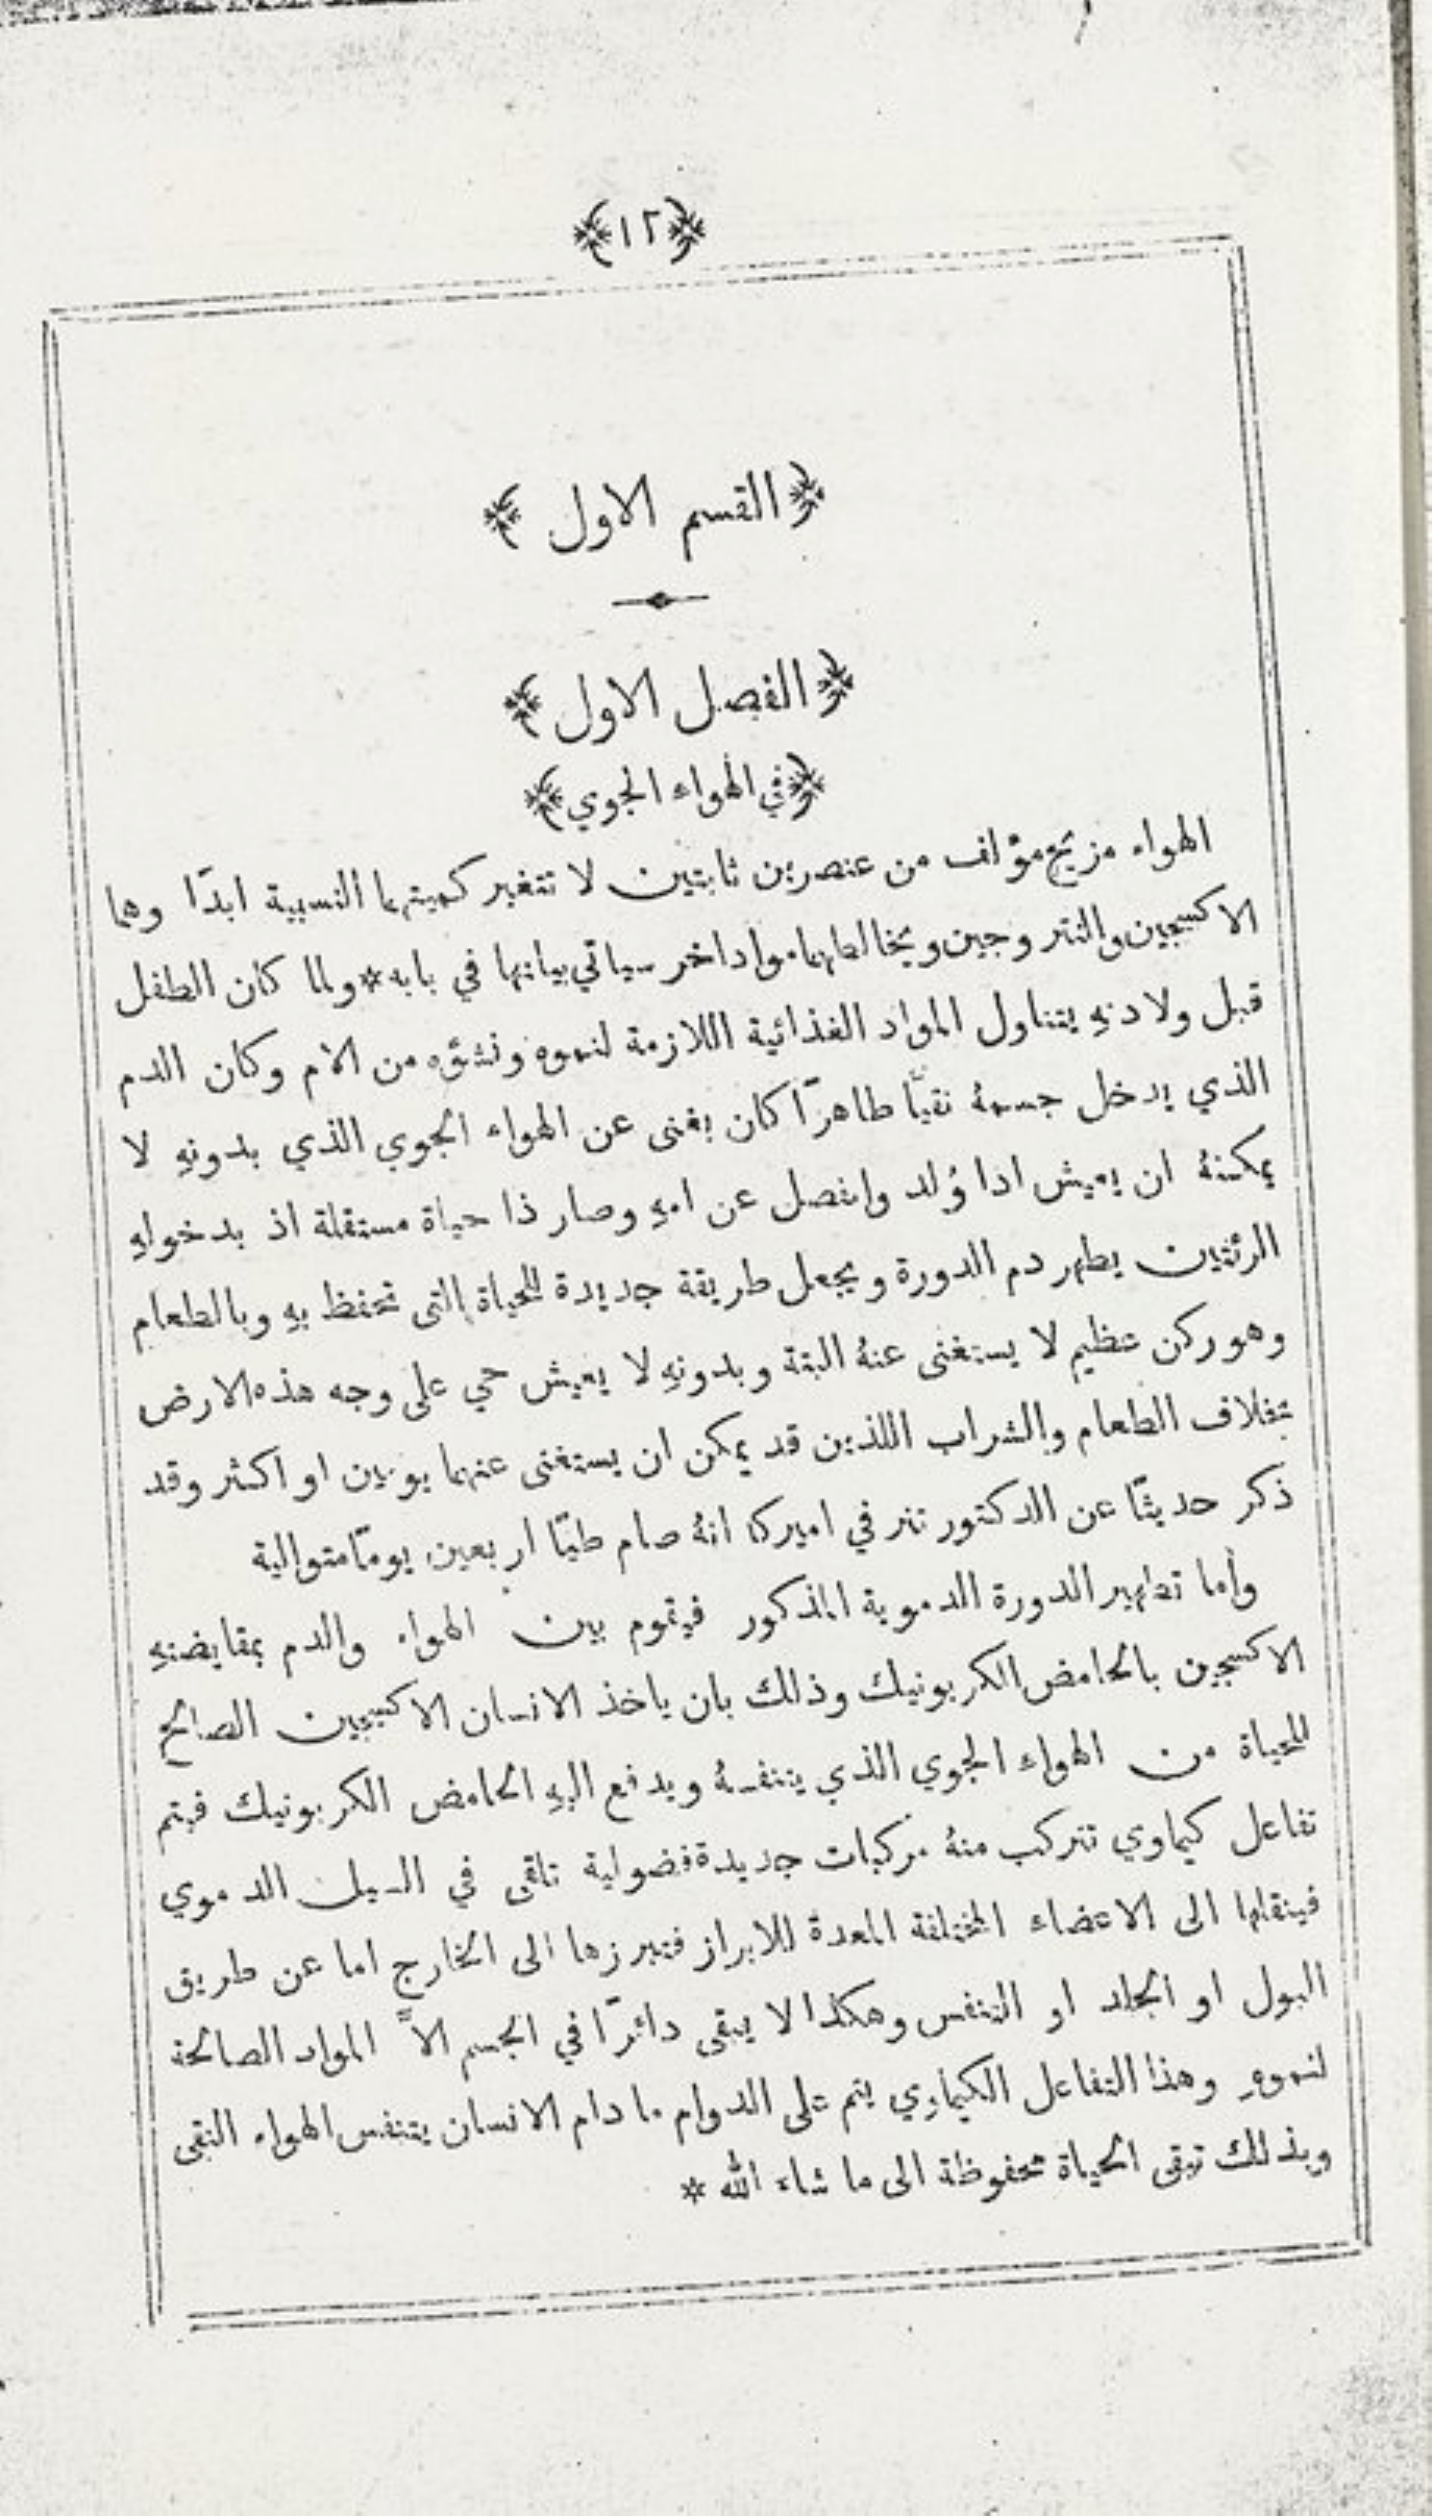 ﴿١٢﴾
﴿القسم الاول﴾
﴿الفصل الاول﴾
﴿في الهواء الجوي﴾
الهواء مزيج مؤلف من عنصرين ثابتين لا تتغير كميتهما النسبية ابدًا وهما
الاكسجين والنتروجين ويخالطهما مواد اخر سياتي بيانها في بابه * ولما كان الطفل
قبل ولادتهِ يتناول المواد الغذائية اللازمة لنموه ونشؤه من الام وكان الدم
الذي يدخل جسمهُ نقيًّا طاهرًا كان بغنى عن الهواء الجوي الذي بدونهِ لا
يمكنهُ ان يعيش اذا وُلد وانفصل عن امهِ وصار ذا حياة مستقلة اذ بدخولهِ
الرئتين يطهر دم الدورة ويجعل طريقة جديدة للحياة التي تحفظ بهِ وبالطعام
وهو ركن عظيم لا يستغنى عنهُ البتة وبدونهِ لا يعيش حي على وجه هذه الارض
بخلاف الطعام والشراب اللذين قد يمكن ان يستغنى عنهما يومين او اكثر وقد
ذكر حديثًا عن الدكتور تنر في اميركا انهُ صام طيًا اربعين يومًا متوالية
واما تطهير الدورة الدموية المذكور فيقوم بين الهواء والدم بمقايضتهِ
الاكسجين بالحامض الكربونيك وذلك بان ياخذ الانسان الاكسجين الصالح
للحياة من الهواء الجوي الذي يتنفسهُ ويدفع اليهِ الحامض الكربونيك فيتم
تفاعل كيماوي تتركب منهُ مركبات جديدة فضولية تلقى في السيل الدموي
فينقلها الى الاعضاء المختلفة المعدة للابراز فتبرزها الى الخارج اما عن طريق
البول او الجلد او التنفس وهكذا لا يبقى دائرًا في الجسم الاَّ المواد الصالحة
لنموهِ وهذا التفاعل الكيماوي يتم على الدوام ما دام الانسان يتنفس الهواء النقي
وبذلك تبقى الحياة محفوظة الى ما شاء الله *